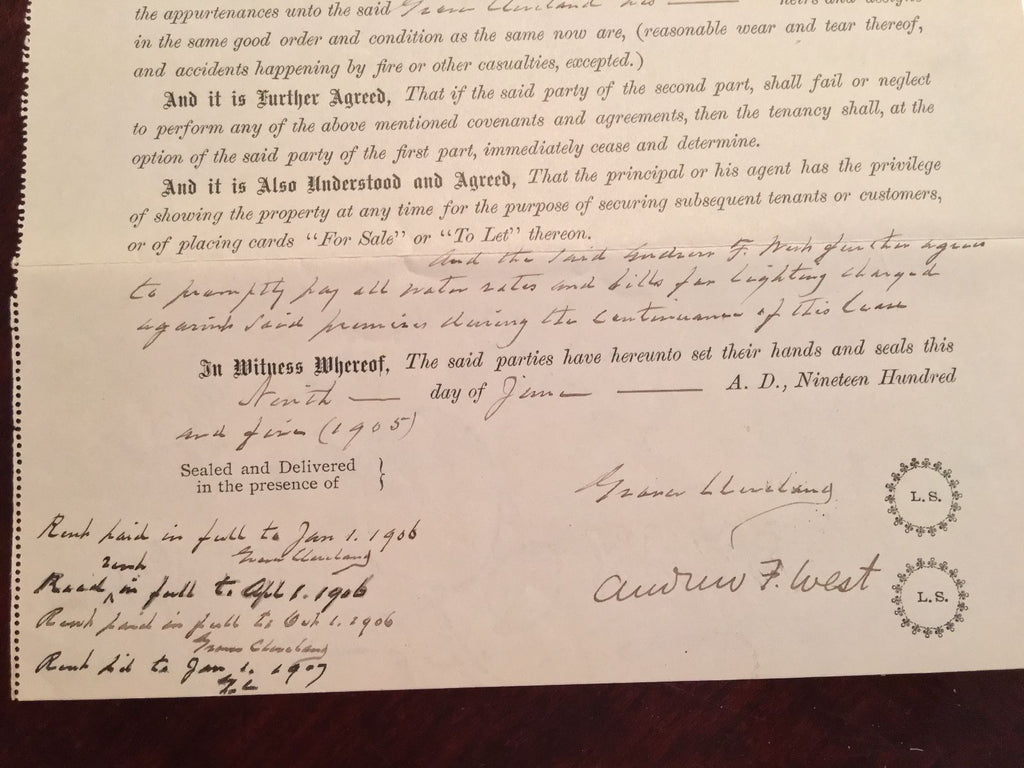 the appurtenances unto the said Grover Cleveland his heirs and assigns
in the same good order and condition as the same now are, (reasonable wear and tear thereof,
and accidents happening by fire or other casualties, excepted.)
And it is Further Agreed, That if the said party of the second part, shall fail or neglect
to perform any of the above mentioned covenants and agreements, then the tenancy shall, at the
option of the said party of the first part, immediately cease and determine.
And it is Also Understood and Agreed, That the principal or his agent has the privilege
of showing the property at any time for the purpose of securing subsequent tenants or customers,
or of placing cards "For Sale" or "To Let" thereon.
And the said Andrew F. West further agrees
to promptly pay all water rates and bills for lighting charged
against said premises during the continuance of this lease
In Witness Whereof, The said parties have hereunto set their hands and seals this
Ninth day of June A. D., Nineteen Hundred
and five (1905)
Sealed and Delivered
in the presence of
Grover Cleveland L. S.
Rent paid in full to Jan 1. 1906
Grover Cleveland
Andrew F. West L. S.
in full to Apl 1. 1906
Rent paid in full to Oct 1. 1906
Grover Cleveland
Rent pd to Jan 1. 1907